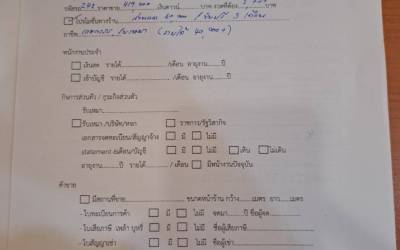 รหัสรถ 248 ราคาขาย 419,000 เงินดาวน์..........บาท
☑ โปรโมชั่นทางร้าน 3
อาชีพ (รายได้ 40,000)
พนักงานประจำ
☐ เงินสด รายได้............../เดือน อายุงาน.......ปี
☐ เข้าบัญชี รายได้............../เดือน อายุงาน.......ปี
กิจการส่วนตัว / ธุรกิจส่วนตัว
รับเหมา..............
☐ รับเหมา /บริษัท/หจก ☐ ราชการ/รัฐวิสาหกิจ
เอกสารจดทะเบียน/สัญญาจ้าง ☐ มี ☐ ไม่มี
statement 6เดือน/บัญชี ☐ มี ☐ ไม่มี ☐ เดิน ☐ ไม่เดิน
อายุงาน.......ปี รายได้............../เดือน ☐ มีหน้างานปัจจุบัน
ค้าขาย
☐ มีสถานที่ขาย.............. ขนาดหน้าร้าน กว้าง.......เมตร ยาว.......เมตร
- ใบทะเบียนการค้า ☐ มี ☐ ไม่มี จดมา.......ปี ชื่อผู้จด..............
- ใบเสียภาษี เหล้า บุหรี่ ☐ มี ☐ ไม่มี ชื่อผู้เสียภาษี..............
- ใบสัญญาเช่า ☐ มี ☐ ไม่มี ชื่อผู้เช่า..............